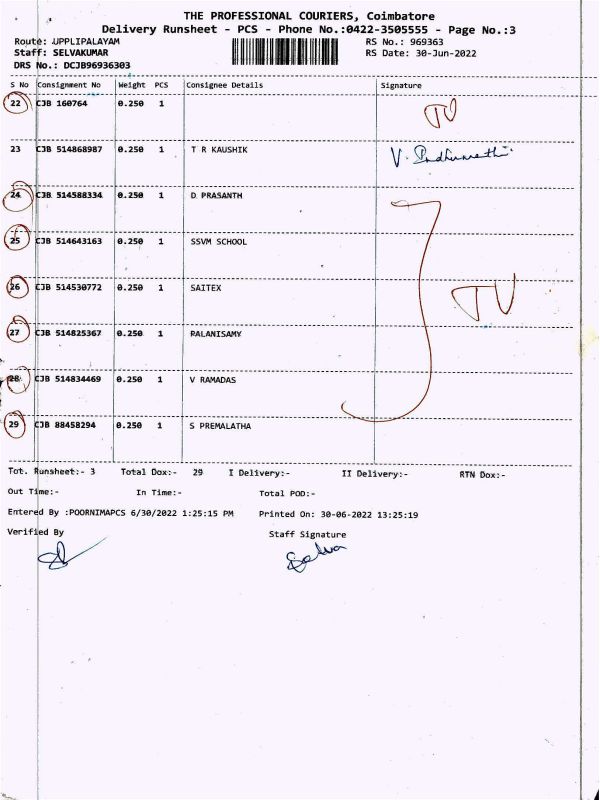 THE PROFESSIONAL COURIERS, Coimbatore
Delivery Runsheet - PCS - Phone No.:0422-3505555 - Page No.:3
Route: UPPLIPALAYAM RS No.: 969363
Staff: SELVAKUMAR RS Date: 30-Jun-2022
DRS No.: DCJB96936303
S No Consignment No Weight PCS Consignee Details Signature
22 CJB 160764 0.250 1 TU
23 CJB 514868987 0.250 1 T R KAUSHIK
24 CJB 514588334 0.250 1 D PRASANTH
25 CJB 514643163 0.250 1 SSVM SCHOOL
26 CJB 514530772 0.250 1 SAITEX TU
27 CJB 514825367 0.250 1 RALANISAMY
28 CJB 514834469 0.250 1 V RAMADAS
29 CJB 88458294 0.250 1 S PREMALATHA
Tot. Runsheet:- 3 Total Dox:- 29 I Delivery:- II Delivery:- RTN Dox:-
Out Time:- In Time:- Total POD:-
Entered By :POORNIMAPCS 6/30/2022 1:25:15 PM Printed On: 30-06-2022 13:25:19
Verified By Staff Signature
Selva